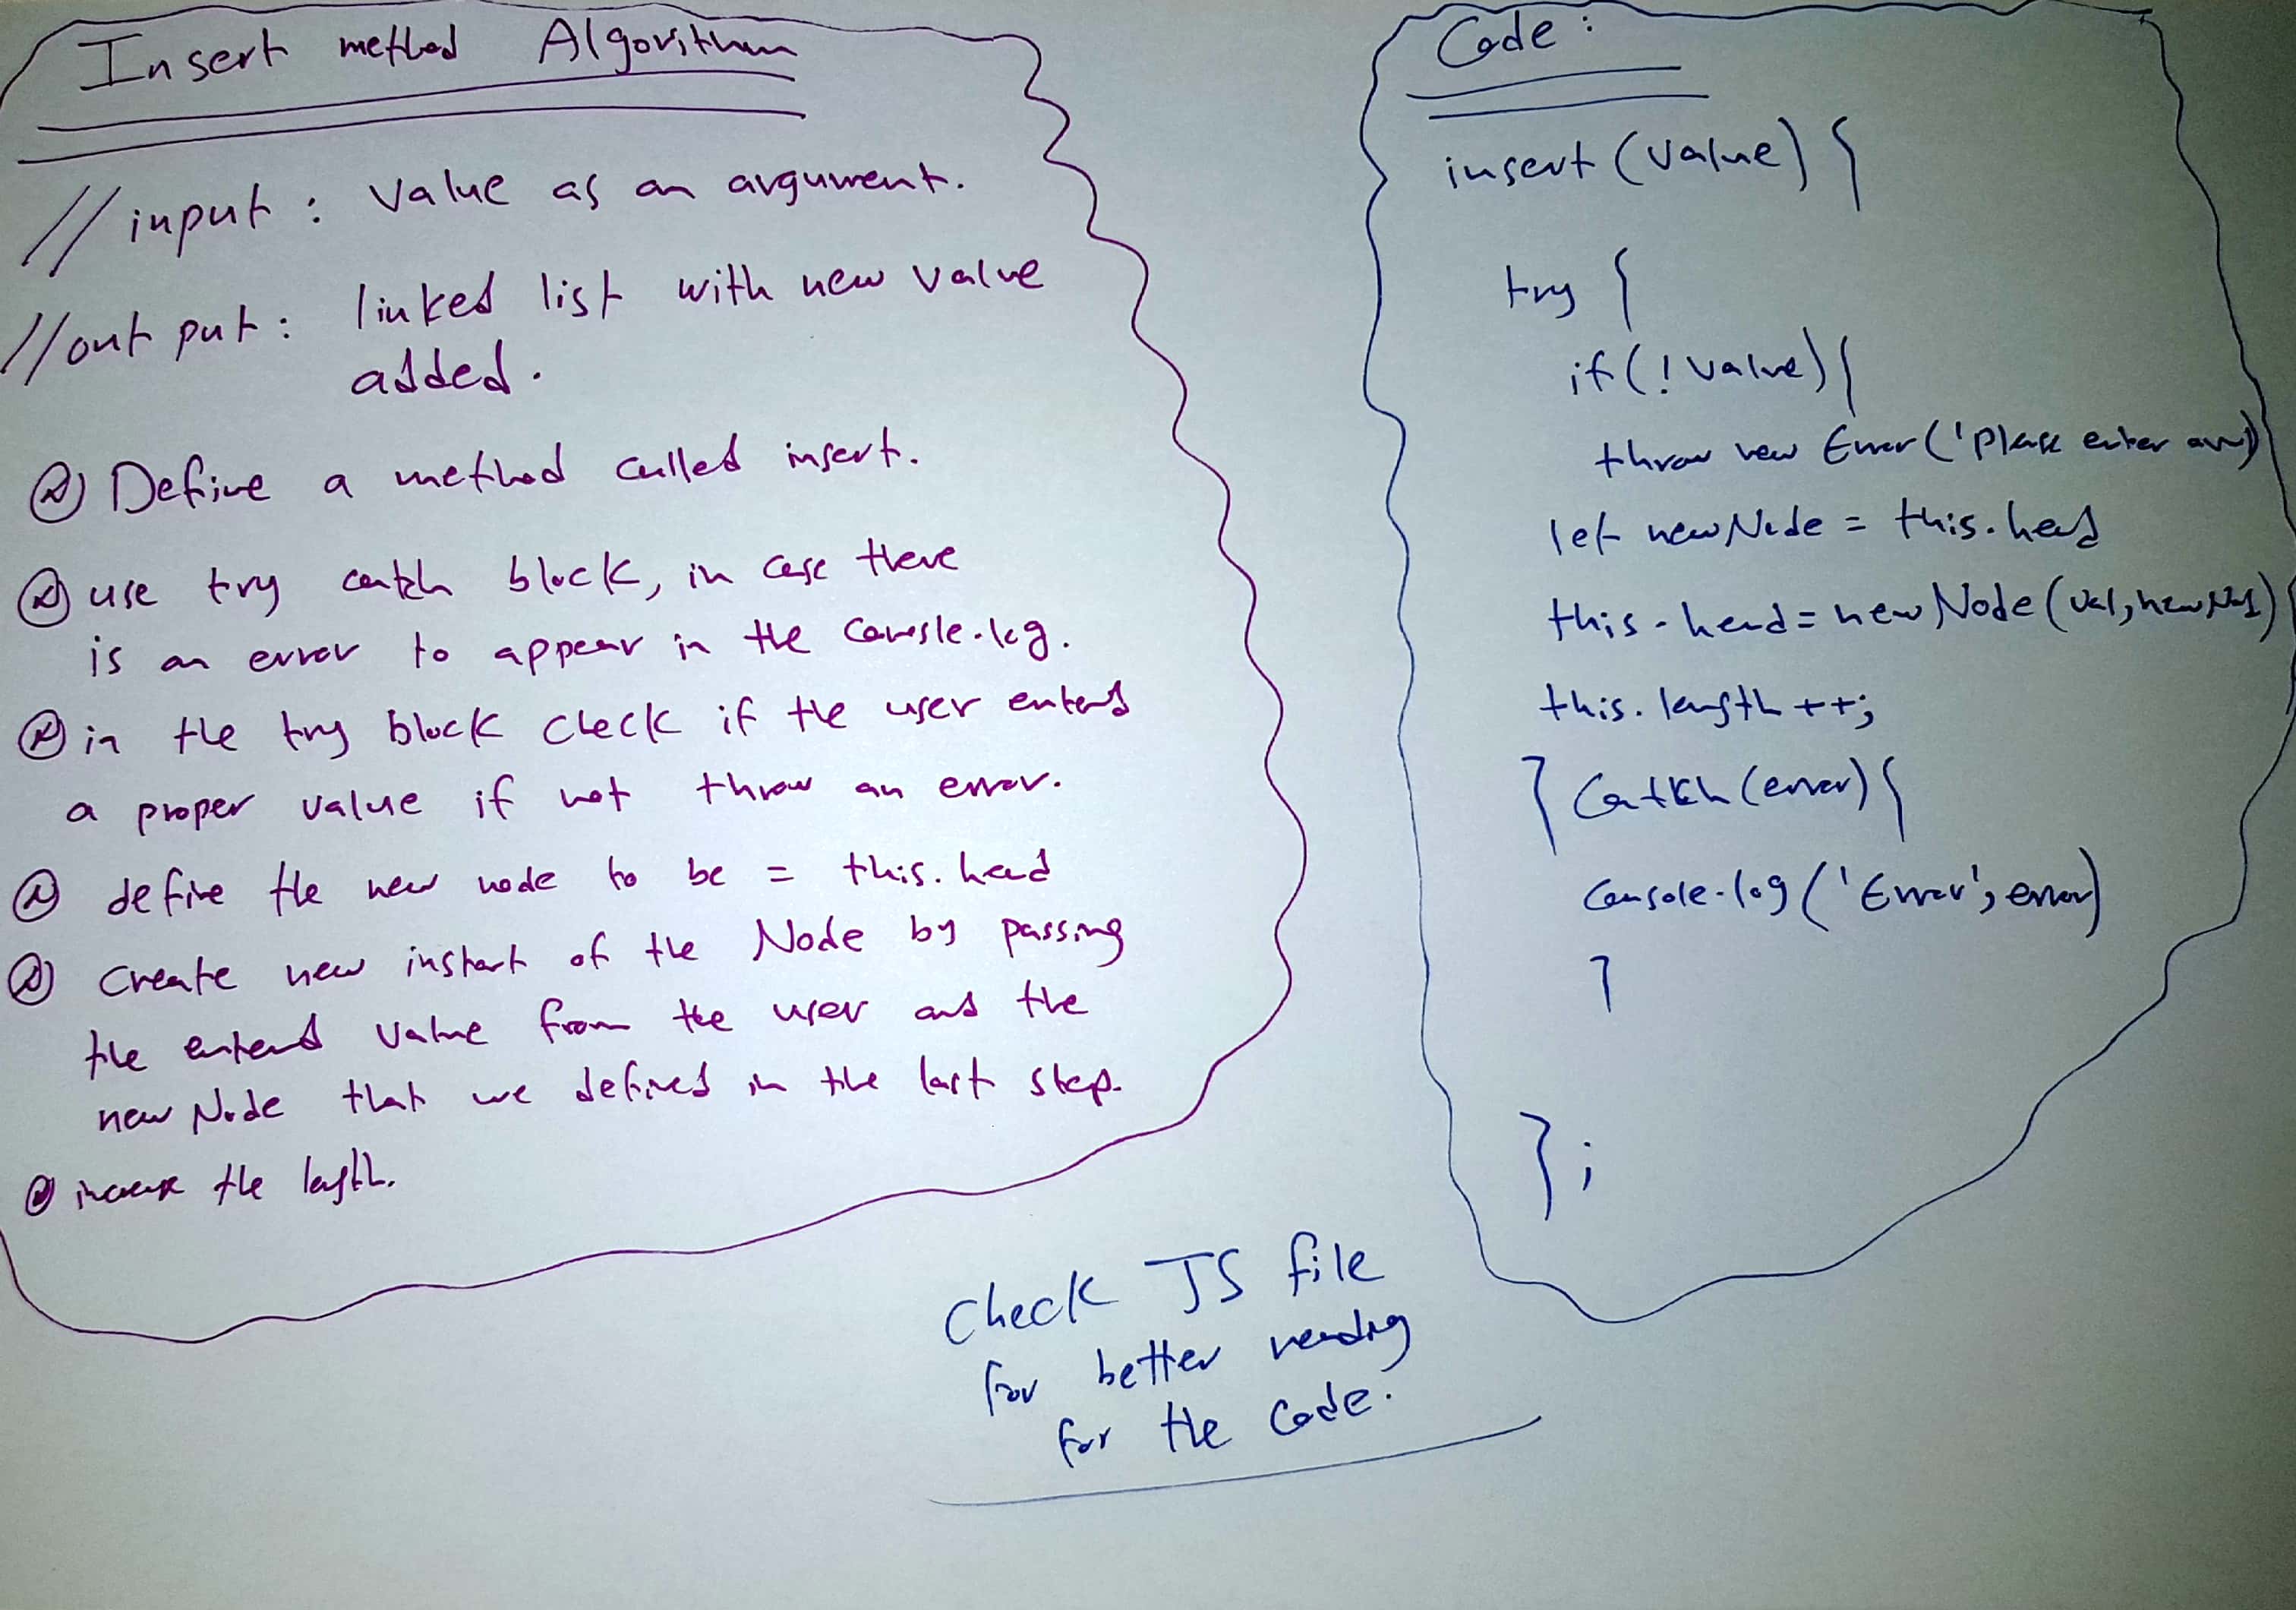 Insert method Algorithm
// input : value as an argument.
// out put : linked list with new value
added.
Define a method called insert.
use try catch block, in case there
is an error to appear in the console.log.
in the try block check if the user enterd
a proper value if not throw an error.
define the new node to be = this.head
Create new instant of the Node by passing
the enterd value from the user and the
new Node that we defined in the last step.
increase the length.
Code :
insert (value) {
try {
if (! value) {
throw new Error ('Please enter
let newNode = this.head
this.head = new Node (val, newNode)
this.length ++;
} Catch (error) {
Console.log ('Error', error)
}
} ;
Check JS file
for better reading
for the Code.